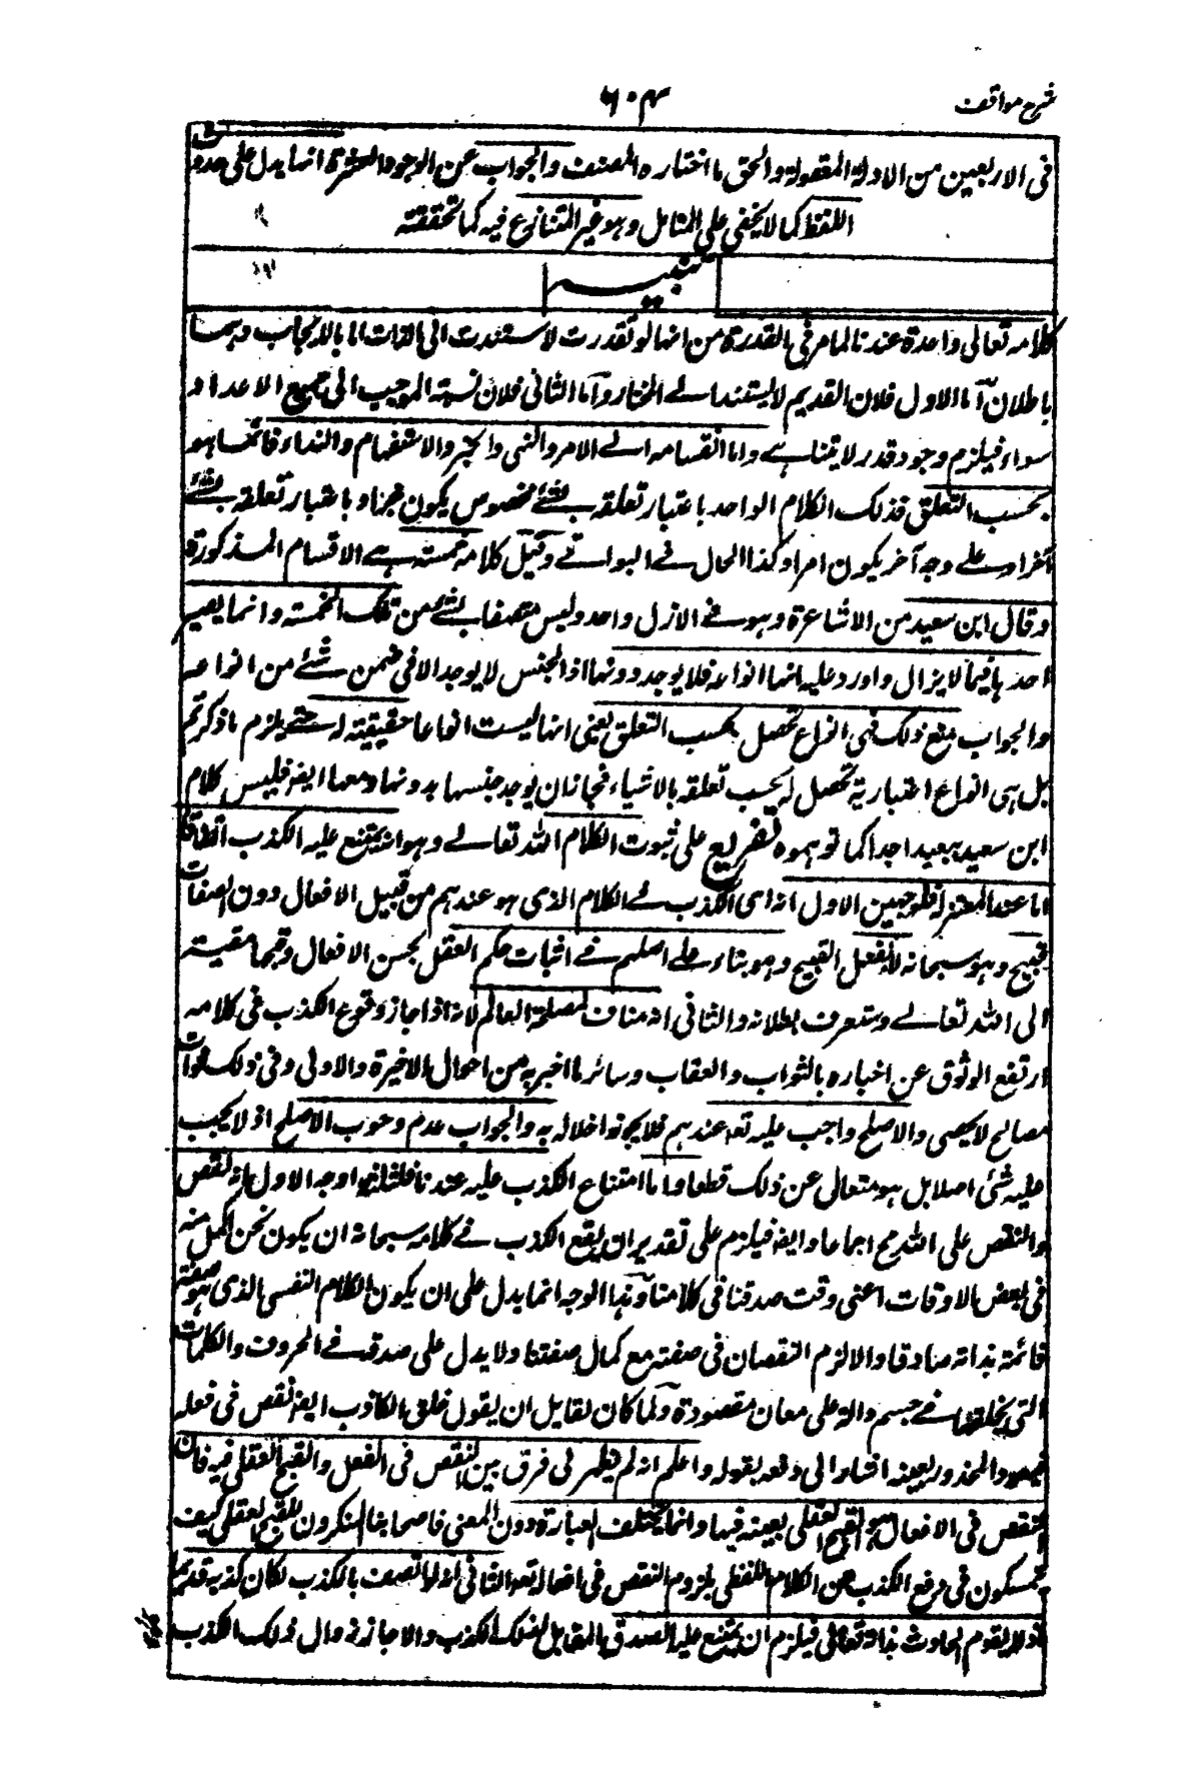 شرح مواقف
٦٠٤
فى الاربعين من الادلة المنقولة والحق ما اختاره المصنف والجواب عن الوجوه العشرة انها يدل على حدوث
اللفظ كما لا يخفى على المتامل وهو غير المتنازع فيه كما تحققته
تنبيه
كلامه تعالى واحدة عندنا لما مر فى القدرة من انها لو تعددت لاستندت الى الذات اما بالاختيار او بالايجاب وهما
باطلان اما الاول فلان القديم لا يستند الى المختار واما الثانى فلان نسبة الموجب الى جميع الاعداد
سواء فيلزم وجود قدر لا يتناهى واما انقسامه الى الامر والنهى والخبر والاستفهام والنداء فانما هو
بحسب التعلق فذلك الكلام الواحد باعتبار تعلقه بشئ مخصوص يكون خبرا وباعتبار تعلقه بشئ
آخر او على وجه آخر يكون امرا وكذا الحال فى البواقى وقيل كلامه خمسة هى الاقسام المذكورة
وقال ابن سعيد من الاشاعرة وهو فى الازل واحد وليس متصفا بشئ من تلك الخمسة وانما يصير
احدها فيما لا يزال واورد عليه انها انواعه فلا يوجد دونها اذ الجنس لا يوجد الا فى ضمن شئ من انواعه
والجواب منع ذلك فى انواع تحصل بحسب التعلق يعنى انها ليست انواعا حقيقية له حتى يلزم ما ذكرتم
بل هى انواع اعتبارية تحصل له بحسب تعلقه بالاشياء فجاز ان يوجد جنسها بدونها ومعها ايضا فليس كلام
ابن سعيد ببعيد جدا كما توهموه تفريع على ثبوت الكلام الله تعالى وهو انه يمتنع عليه الكذب اتفاقا
اما عند المعتزلة فلوجهين الاول انه اى الكذب فى الكلام الذى هو عندهم من قبيل الافعال دون الصفات
قبيح وهو سبحانه لا يفعل القبيح وهو بناء على اصلهم فى اثبات حكم العقل بحسن الافعال وقبحها مقيسة
الى الله تعالى وستعرف بطلانه والثانى انه مناف لمصلحة العالم لانه اذا جاز وقوع الكذب فى كلامه
ارتفع الوثوق عن اخباره بالثواب والعقاب وسائر ما اخبر به من احوال الاخيرة والاولى وفى ذلك فوات
مصالح لا يحصى والاصلح واجب عليه تع عندهم فلا يجوز اخلاله به والجواب عدم وجوب الاصلح اذ لا يجب
عليه شئ اصلا بل هو متعالى عن ذلك قطعا واما امتناع الكذب عليه عندنا فلثلثة اوجه الاول انه نقص
والنقص على الله مح اجماعا وايضا فيلزم على تقدير ان يقع الكذب فى كلامه سبحانه ان يكون نحن اكمل منه
فى بعض الاوقات اعنى وقت صدقنا فى كلامنا وهذا الوجه انما يدل على ان يكون الكلام النفسى الذى هو صفة
قائمة بذاته صادقا والا لزم النقصان فى صفته مع كمال صفتنا ولا يدل على صدقه فى الحروف والكلمات
التى يخلقها فى جسم دالة على معان مقصودة ولما كان لقايل ان يقول خلق الكاذب ايضا نقص فى فعله
فيعود المحذور بعينه اشار الى دفعه بقوله واعلم انه لم يظهر لى فرق بين النقص فى الفعل والقبح العقلى فيه فان
النقص فى الافعال هو القبح العقلى بعينه فيها وانما يختلف العبارة دون المعنى فاصحابنا المنكرون للقبح العقلى كيف
يتمسكون فى دفع الكذب عن الكلام اللفظى بلزوم النقص فى افعاله تع الثانى انه لو اتصف بالكذب لكان كذبه قديما
اذ لا يقوم الحادث بذاته تعالى فيلزم ان يمتنع عليه الصدق المقابل لذلك الكذب والا جاز زوال ذلك الكذب